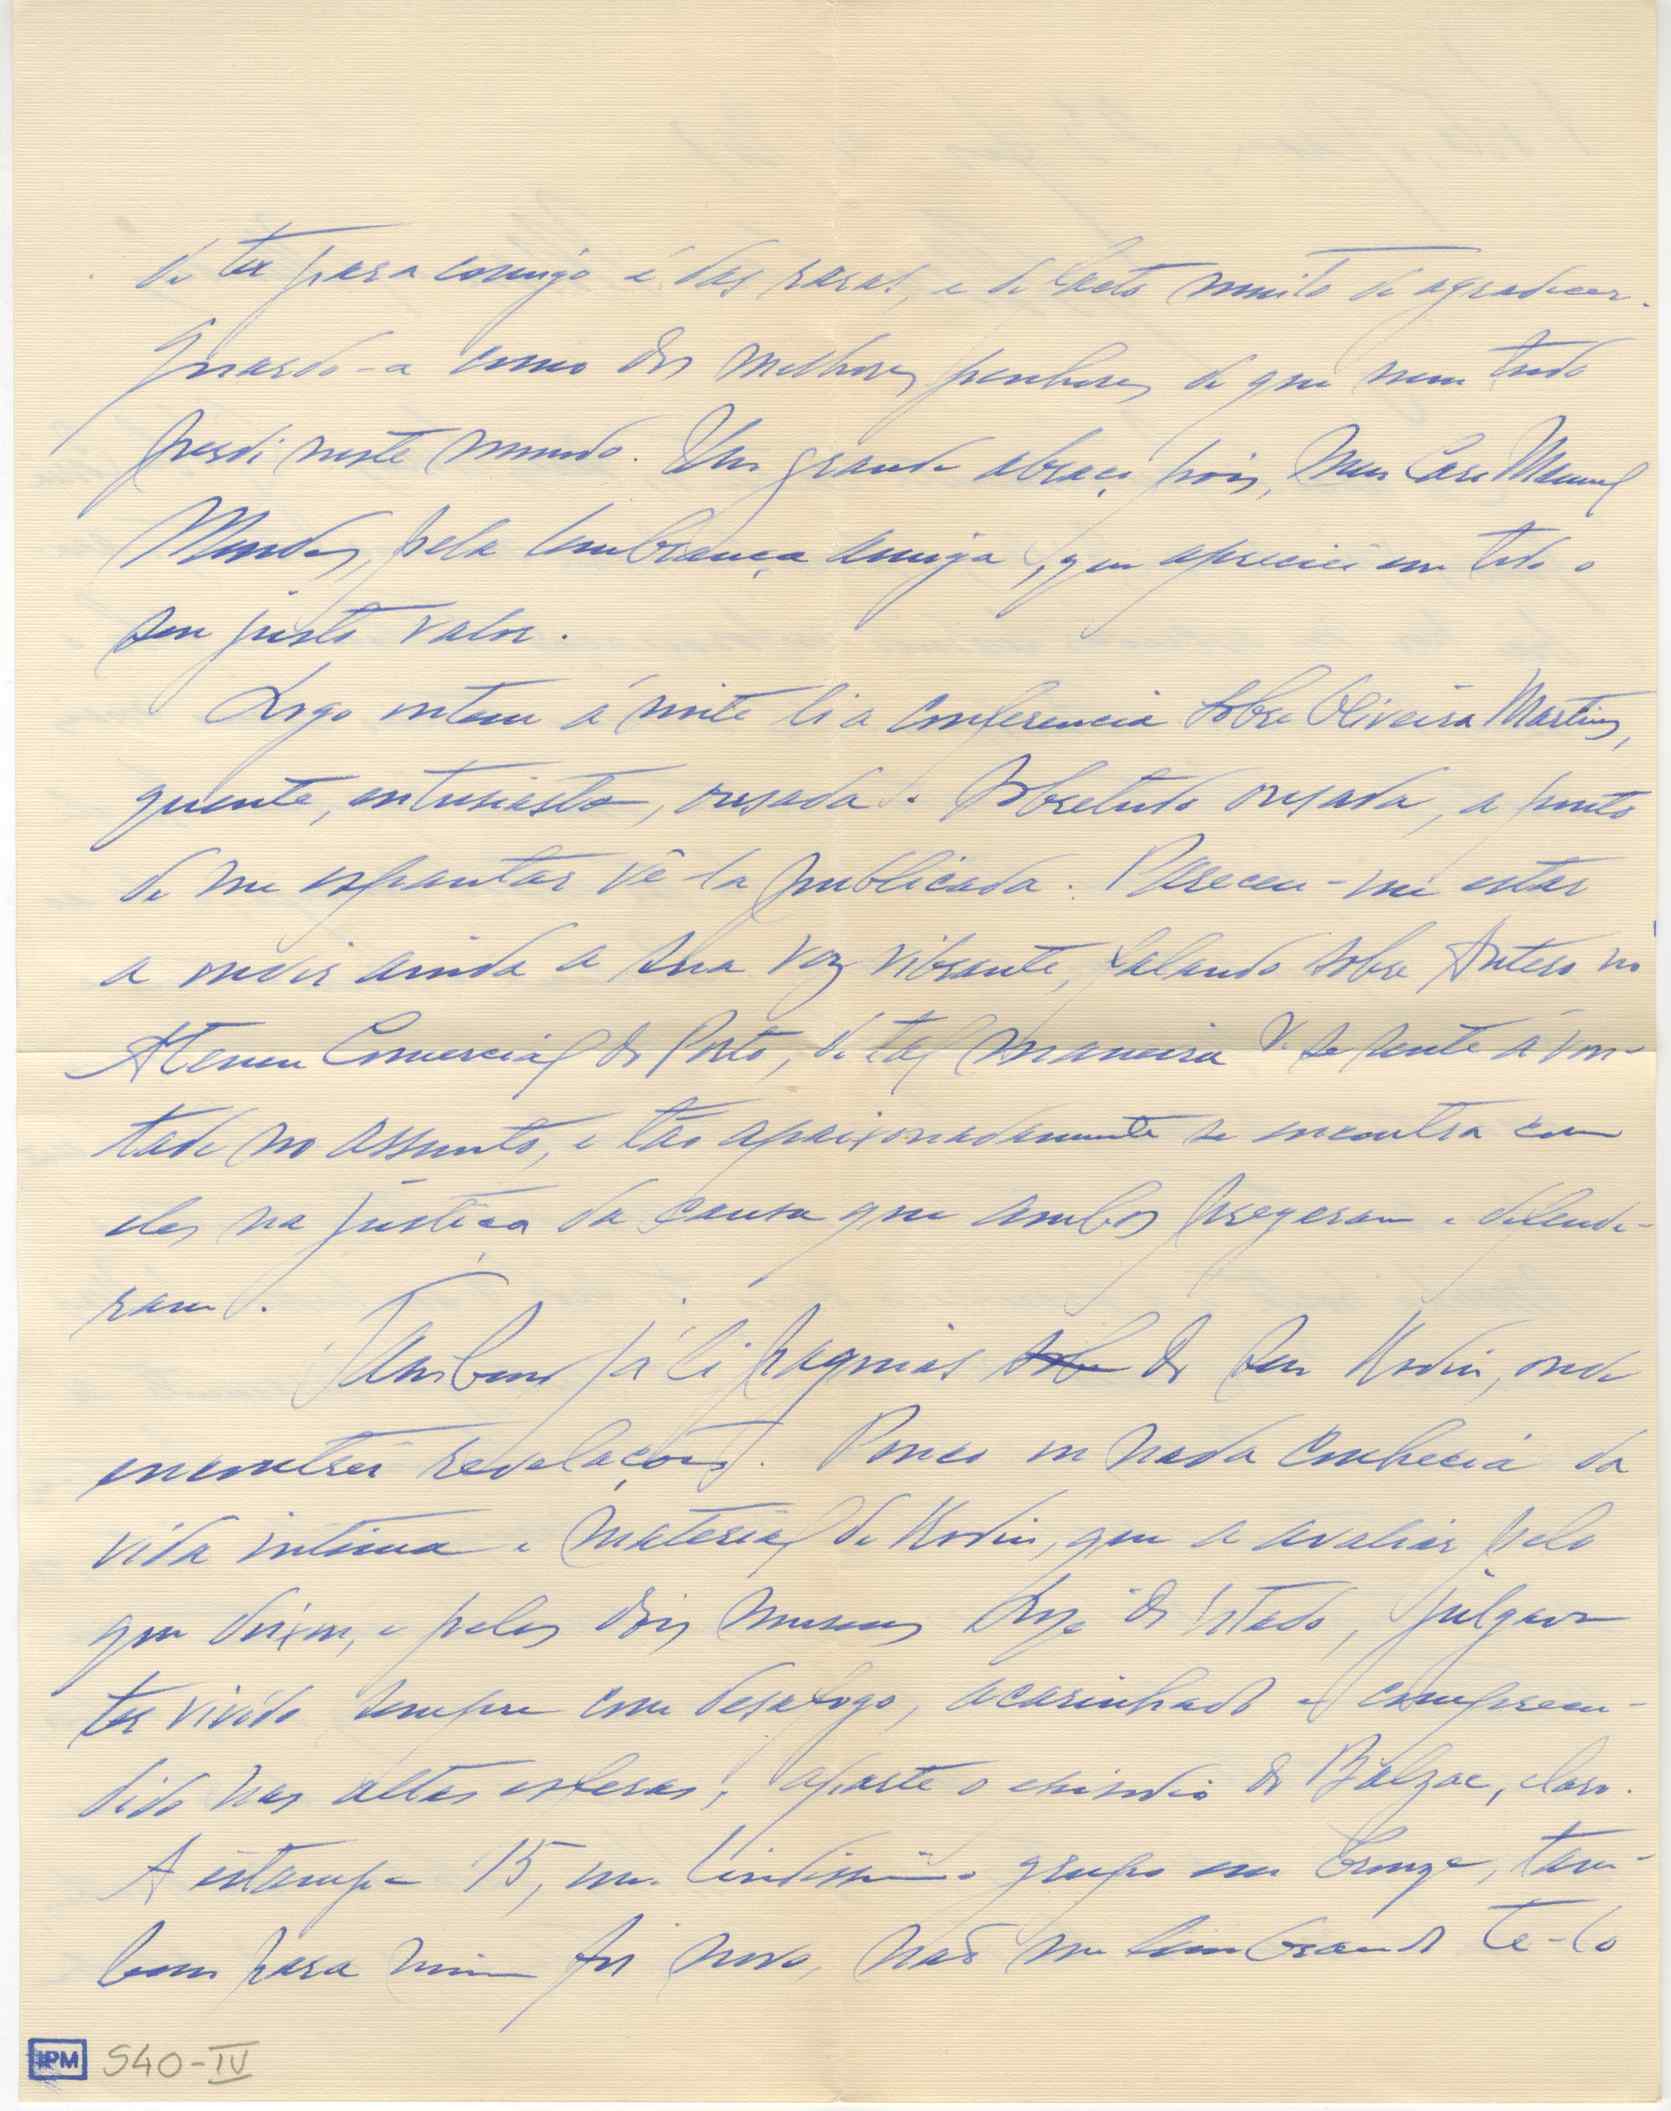 de ter para comigo é das raras, e de facto muito de agradecer.
Guardo-a como dos melhores penhores de que nem tudo
perdi neste mundo. Um grande abraço, pois, meu Caro Manuel
Mendes, pela lembrança amiga, que apreciei em todo o
seu justo valor.
Logo ontem á noite li a conferencia sobre Oliveira Martins,
quente, entusiasta, ousada. Sobretudo ousada, a ponto
de me espantar vê-la publicada. Pareceu-me estar
a ouvir ainda a sua voz vibrante, falando sobre Antero no
Ateneu Comercial do Porto, de tal maneira V. se sente á von-
tade no assunto, e tão apaixonadamente se encontra com
eles na justiça da causa que ambos pregaram e defende-
ram.
Tambem já li paginas sobre do seu Rodin, onde
encontrei revelações. Pouco ou nada conhecia da
vida intima e material de Rodin, que a avaliar pelo
que deixou, e pelos dois museus hoje do Estado, julgava
ter vivido sempre com desafogo, acarinhado e compreen-
dido nas altas esferas, aparte o episodio do Balzac, claro.
A estampa 15, um lindissimo grupo em bronze, tam-
bem para mim foi novo, não me lembrando tê-lo
IPM 540-IV